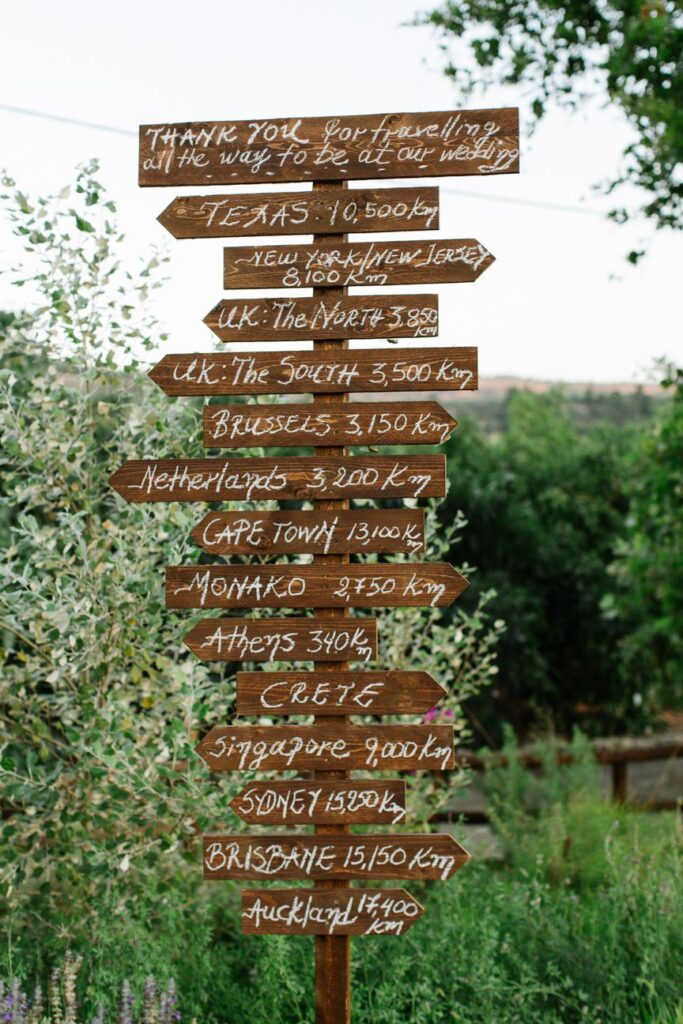 THANK YOU for travelling
all the way to be at our wedding
TEXAS 10,500 Km
NEW YORK/NEW JERSEY
8,100 Km
UK: The NORTH 3,850
Km
UK: The SOUTH 3,500 Km
BRUSSELS 3,150 Km
Netherlands 3,200 Km
CAPE TOWN 13,100 Km
MONAKO 2,750 Km
Athens 340 Km
CRETE
Singapore 9,000 Km
SYDNEY 15,250 Km
BRISBANE 15,150 Km
Auckland 17,400
Km